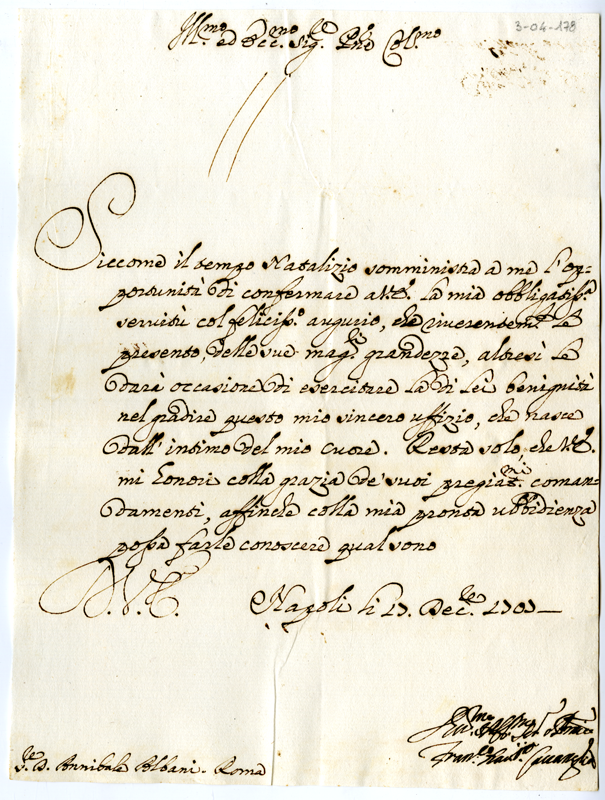 3-04-178
Ill.mo ed Ecc.mo Sig.re P.ne Col.mo
Siccome il tempo Natalizio somministra a me l'op-
portunità di confermare a V.E. la mia obbligatiss.a
servitù col feliciss.o augurio, che riverentem.te le
presento, delle sue mag.ri grandezze, altresì le
darà occasione di esercitare la di lei benignità
nel gradire questo mio sincero uffizio, che nasce
dall'intimo del mio cuore. Resta solo, che V.E.
mi honori colla grazia de' suoi pregiat.mi coman-
damenti, affinche colla mia pronta ubbidienza
possa farle conoscere qual sono
D.V.E. Napoli li Dec.re
S.r D. Annibale Albani. Roma